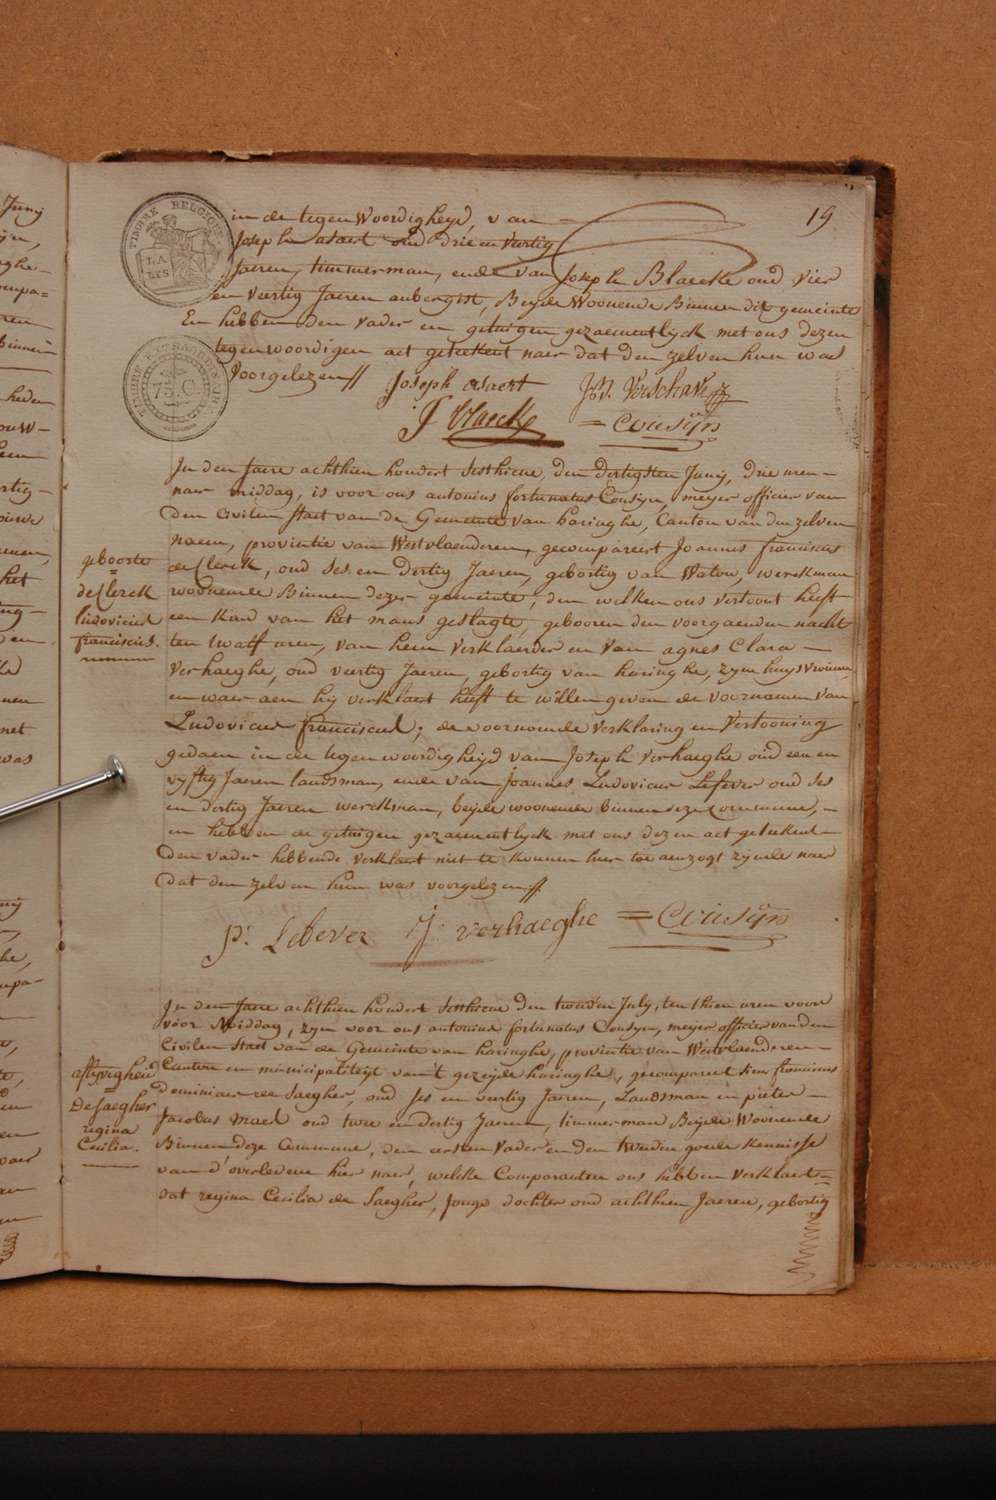 19
TIMBRE BELGIQUE
in de tegenWoordigheyd, van
Joseph asaert oud drie en veertig
Jaeren, timmerman, ende van Joseph Blaecke oud vier
en veertig Jaeren aubergist, Beyde Woonende Binnen dit gemeinte
En hebben den vader en getuigen gezaementlyck met ons dezen
tegenwoordigen act geteekent naer dat den zelven hun was
voorgelezen//
Joseph asaert
J blaecke
= Cousyn
geboorte
=
deClerck
ludovicus
franciscus.
In den Jaere achthien hondert sesthiene, den dertigsten Junÿ, drie uren
naer middag, is voor ons antonius fortunatus Cousyn, meyer officier van
den civilen staet van de Gemeente van haringhe, Canton van den zelven
naem, provintie van Westvlaenderen, gecompareert Joannes franciscus
de Clerck, oud ses en dertig Jaeren, gebortig van Watou, werckman
woonende Binnen dezer gemeinte, den welken ons vertoont heeft
een kind van het mans geslagte, gebooren den voorgaenden nacht
ten twalf uren, van hem verklaerder en van agnes Clara
Verhaeghe, oud veertig Jaeren, gebortig van haringhe, zyne huysvrouwe,
en waer aen hy verklaert heeft te willen geven de voornamen van
Ludovicus franciscus; de voornoemde verklaring en vertooning
gedaen in de tegenwoordigheyd van Joseph verhaeghe oud een en
vyftig Jaeren landsman, ende van joannes Ludovicus Lefever oud ses
en dertig Jaeren werckman, beyde woonende binnen deze Commune,
en hebben de getuigen gezaementlyck met ons dezen act geteekent
den vader hebbende verklaert niet te konnen hier toe aenzogt zynde naer
dat den zelven hun was voorgelezen//
Lefever J: verhaeghe = Cousyn
aflyvigheid
De Saegher
regina
Cecilia.
In den Jaere achthien hondert sesthiene den tweeden July, ten thien uren voor
voor Middag, zyn voor ons antonius fortunatus Cousyn, meyer officier van den
Civilen staet van de Gemeinte van haringhe, provintie van Westvlaenderen
Canton en municipaliteyt van't gezeyde haringhe, gecompareert sieur franciscus
dominicus de Saegher, oud ses en veertig Jaeren, Landsman en pieter
Jacobus mael oud twee en dertig Jaeren, timmerman Beyde Woonende
Binnen deze Commune, den eersten vader en den tweeden goede kennisse
van d'overledene hier naer, welcke Comparanten ons hebben verklaert
dat regina Cecilia de Saegher, jonge dochter oud achthien Jaeren, gebortig